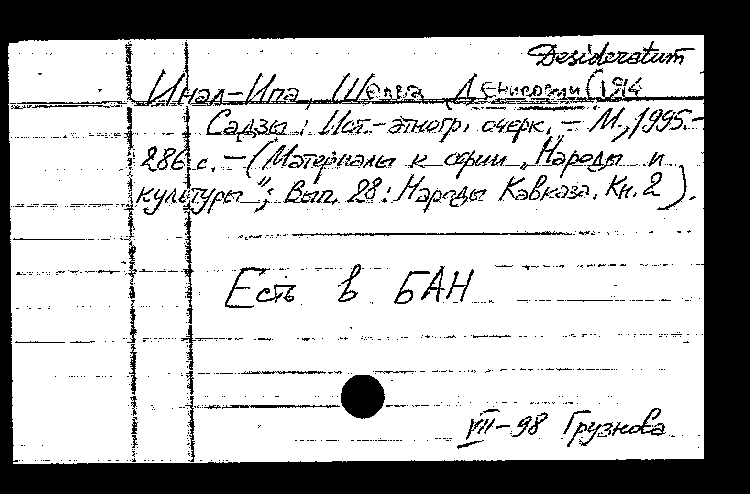 Desideratum
Инал-Ипа, Шалва Денисович (1914
Садзы : Ист.-этногр. очерк. – М., 1995.–
286 с. – (Материалы к серии „Народы и
культуры"; Вып. 28 : Народы Кавказа. Кн. 2).
Есть в БАН
VII-98 Грузнова